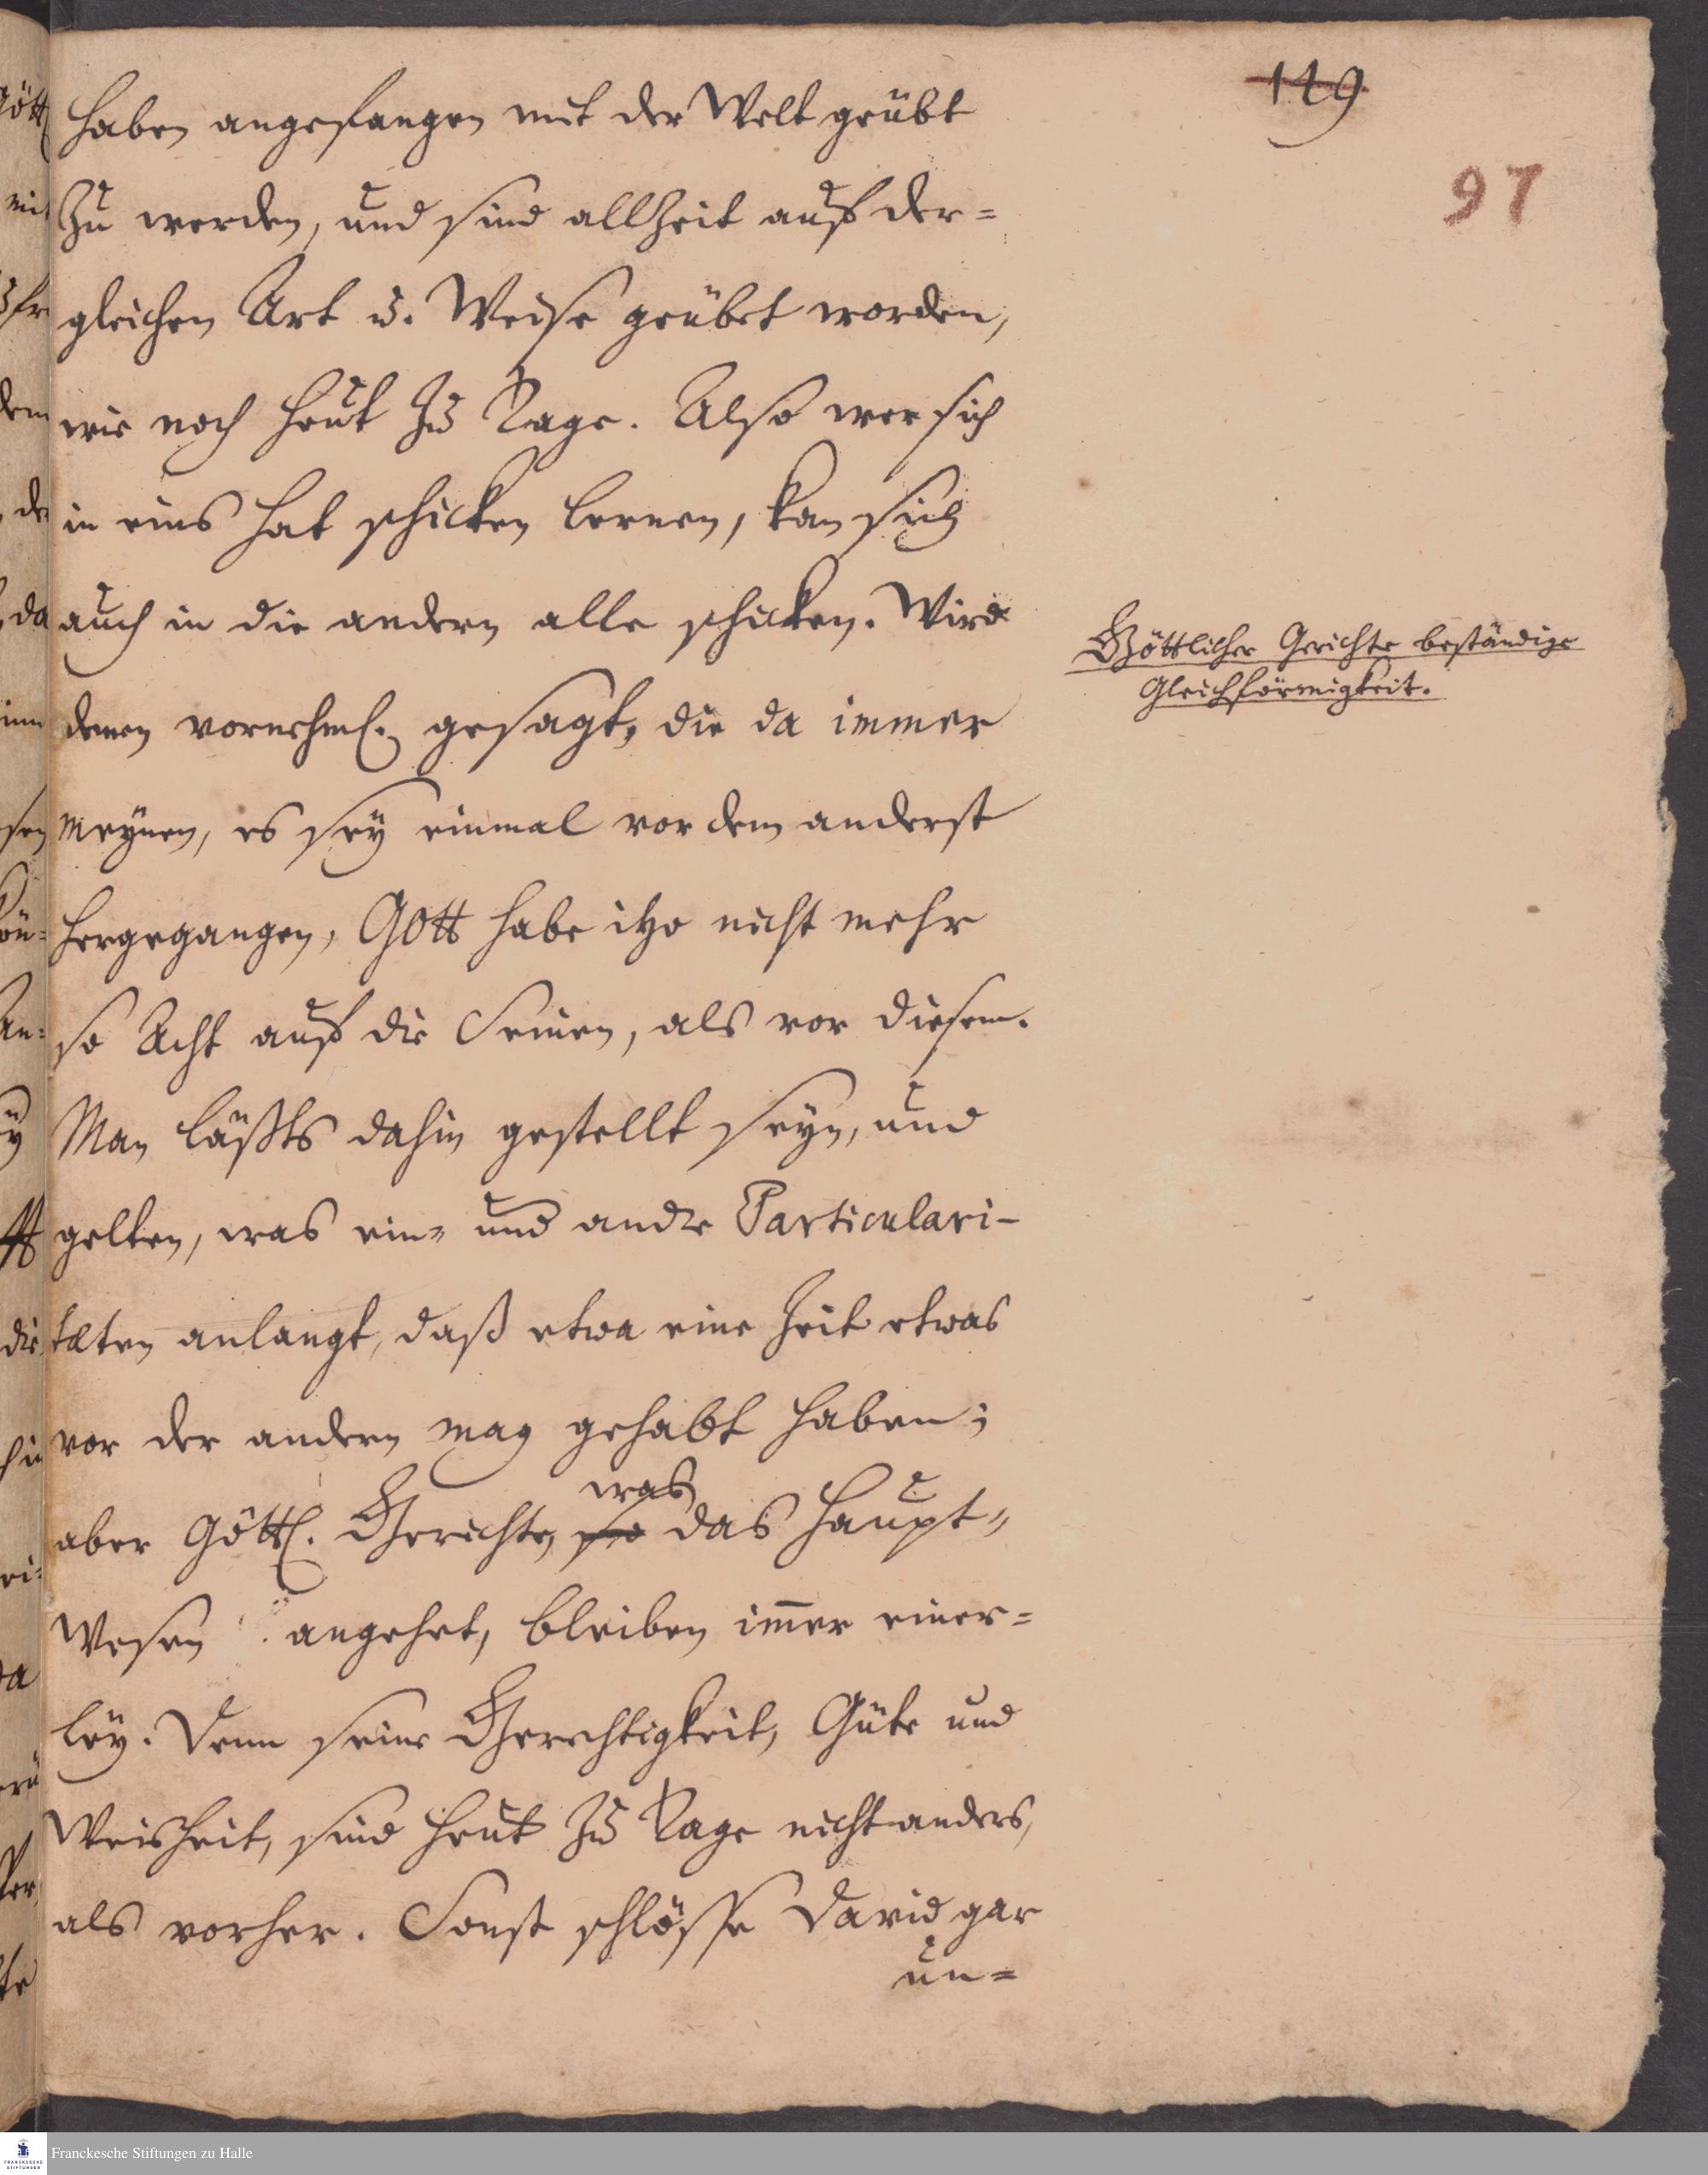 119
97
haben angefangen mit der Welt geübt
zu werden, und sind allzeit auf der=
gleichen Art u. Weise geübet worden,
wie noch heut zu Tage. Also wer sich
in eins hat schicken lernen, kan sich
auch in die andern alle schicken. Wird
Göttlicher Gerichte beständige
Gleichförmigkeit.
denen vornehml. gesagt, die da immer
meynen, es sey einmal vor dem anderst
hergegangen, GOtt habe itzo nicht mehr
so Acht auf die Seinen, als vor diesem.
Man läßts dahin gestellt seyn, und
gelten, was ein= und andre Particulari-
täten anlangt, daß etwa eine Zeit etwas
vor der andern mag gehabt haben;
was
aber Göttl. Gerichte, so das Haupt=
Wesen angehet, bleiben im̅er einer=
ley. Denn seine Gerechtigkeit, Güte und
Weisheit, sind heut zu Tage nicht anders,
als vorher. Sonst schlösse David gar
un=
Franckesche Stiftungen zu Halle